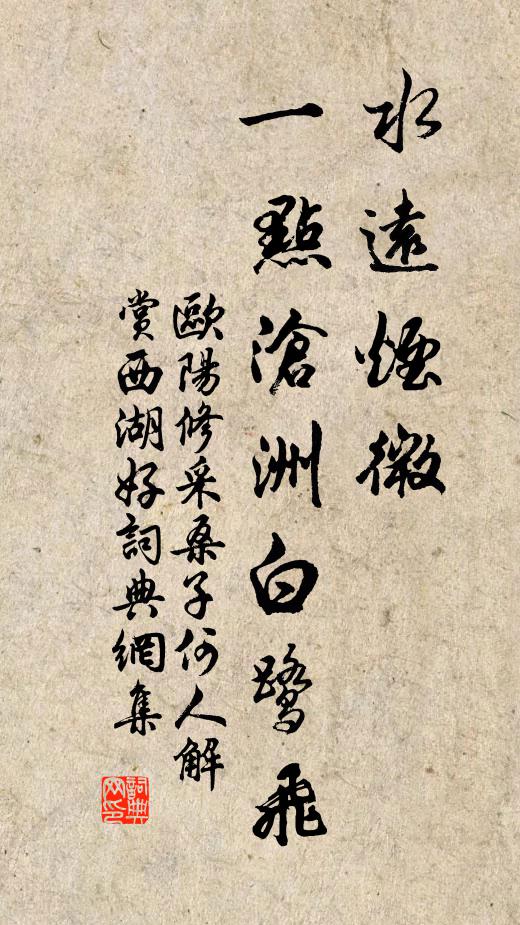 水遠煙微
一點滄洲白鷺飛
歐陽修采桑子何人解
賞西湖好詞典網集
詞典
网印